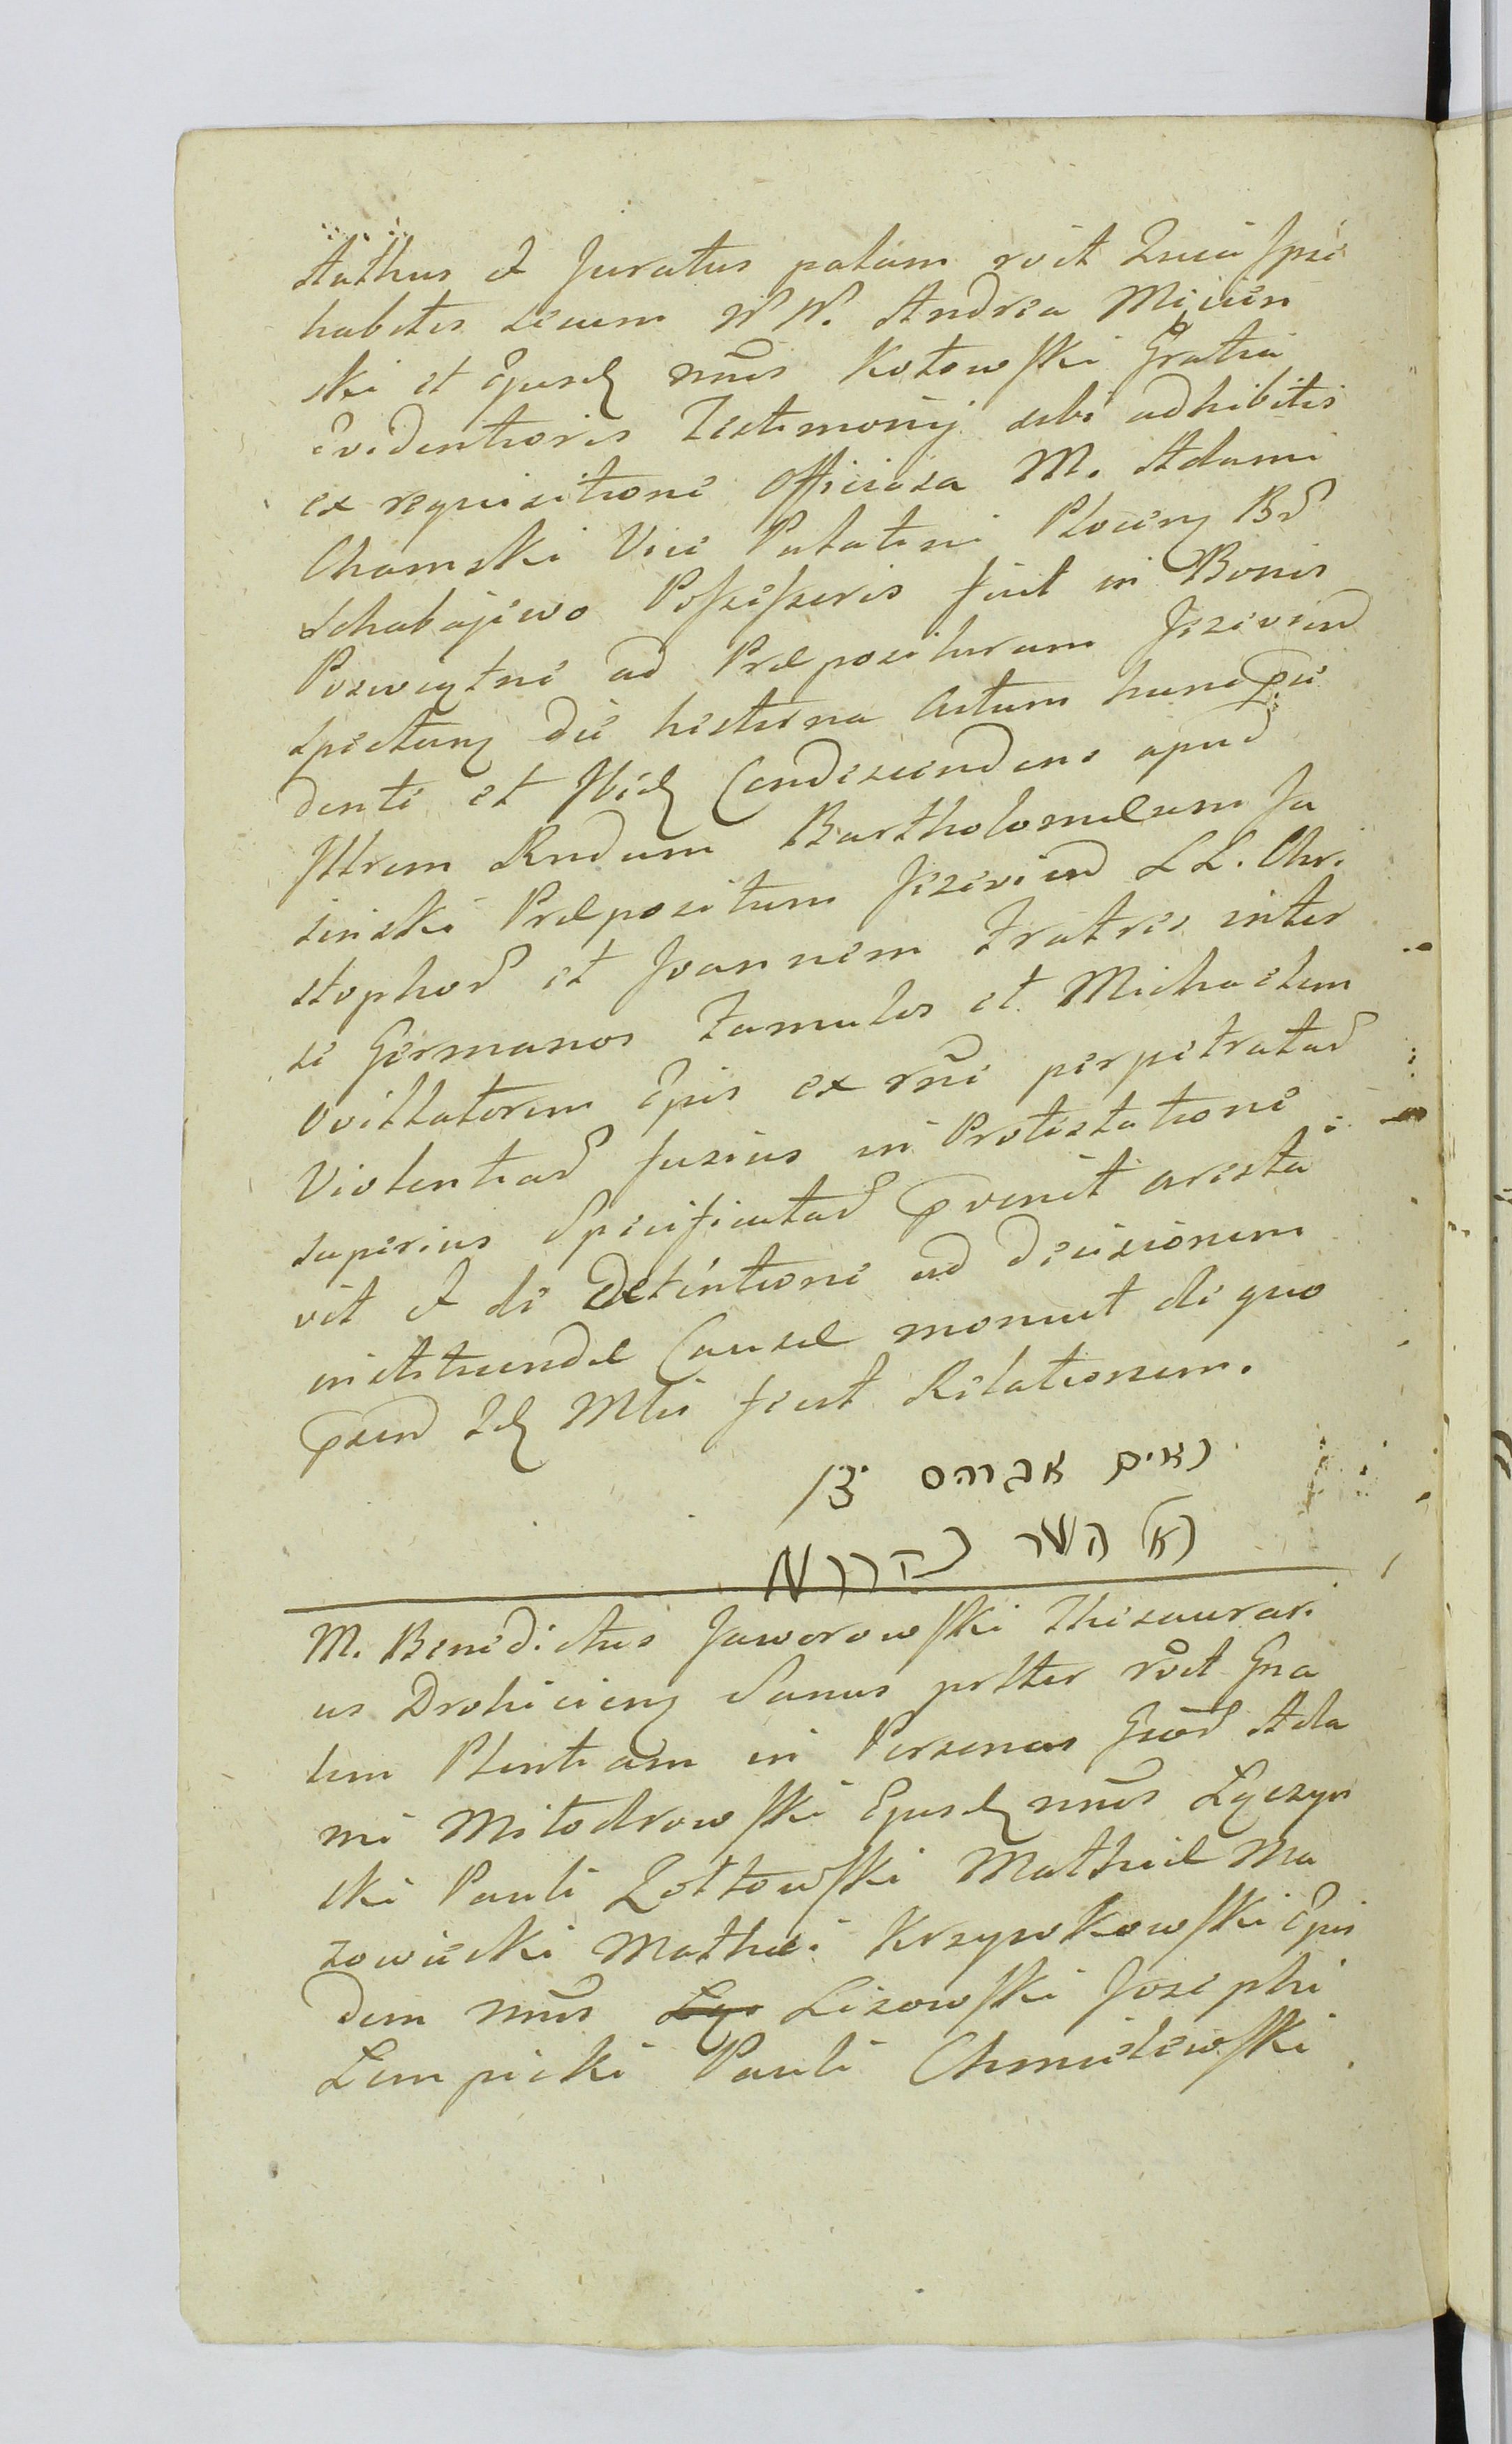 stathus et Juratus palam r̃cit Quia Ipse
habitis secum NN. Andrea Micien
ski et Ejusdę nn̄is Kotowski Gratia
evidentioris Testimonij sibi adhibitis
ex requisitione Officiosa M. Adami
Chamski Vice Palatini Plocenę Bd
Schabajewo Possessoris fuit in Bonis
Poswiętne ad Præposituram Jezeviend
spectanę die hesterna Actum hunc
denti et Ibidę Condescendens apud
Illrem Rndum Bartholomæum Ja
sinski Præpositum Jezeviend LL. Chri
stophord et Joannem Fratres inter
se Germanos Famulos et Michaelem
Ovillatorem Ejus ex rn̄e perpetratad
Violentiad fusius in Protestatione
superius Specificatad pvenit aresta
vit et de Detentione ad decisionem
instituendæ Causæ monuit de quo
psend Idę Mlis fecit Relationem.
נאום אברהם
M. Benedictus Jaworowski Thesaurari
us Drohicienę Sanus psltter r̃cit Gna
lem Plentiam in Personas Gnod Ada
mi Milodrowski Ejusdę nn̄is Łęczyn
ski Pauli Zoltowski Mathiæ Ma
zowiecki Mathæi Krzyskowski Ejus
dem nn̄is Lisowski Josephi
Lempicki Pauli Chmielewski